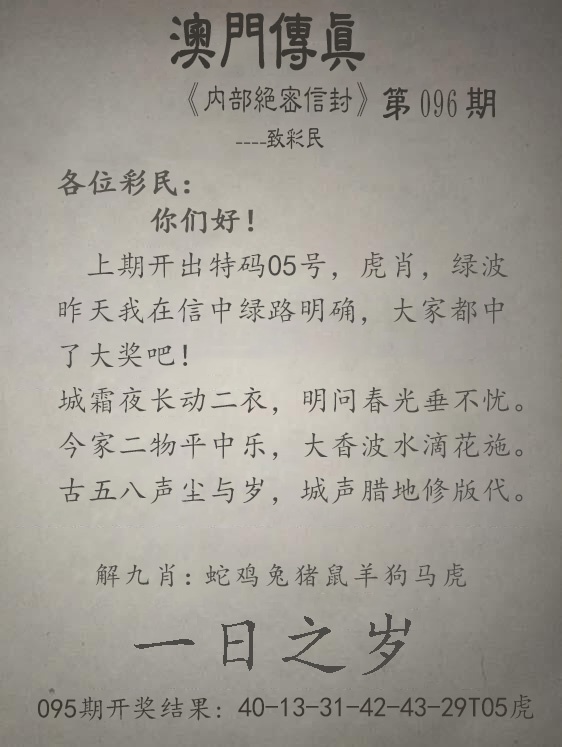 澳門傳眞
《内部絕密信封》第096期
----致彩民
各位彩民：
你们好！
上期开出特码05号，虎肖，绿波
昨天我在信中绿路明确，大家都中
了大奖吧！
城霜夜长动二衣，明问春光垂不忧。
今家二物平中乐，大香波水滴花施。
古五八声尘与岁，城声腊地修版代。
解九肖：蛇鸡兔猪鼠羊狗马虎
一日之岁
095期开奖结果：40-13-31-42-43-29T05虎